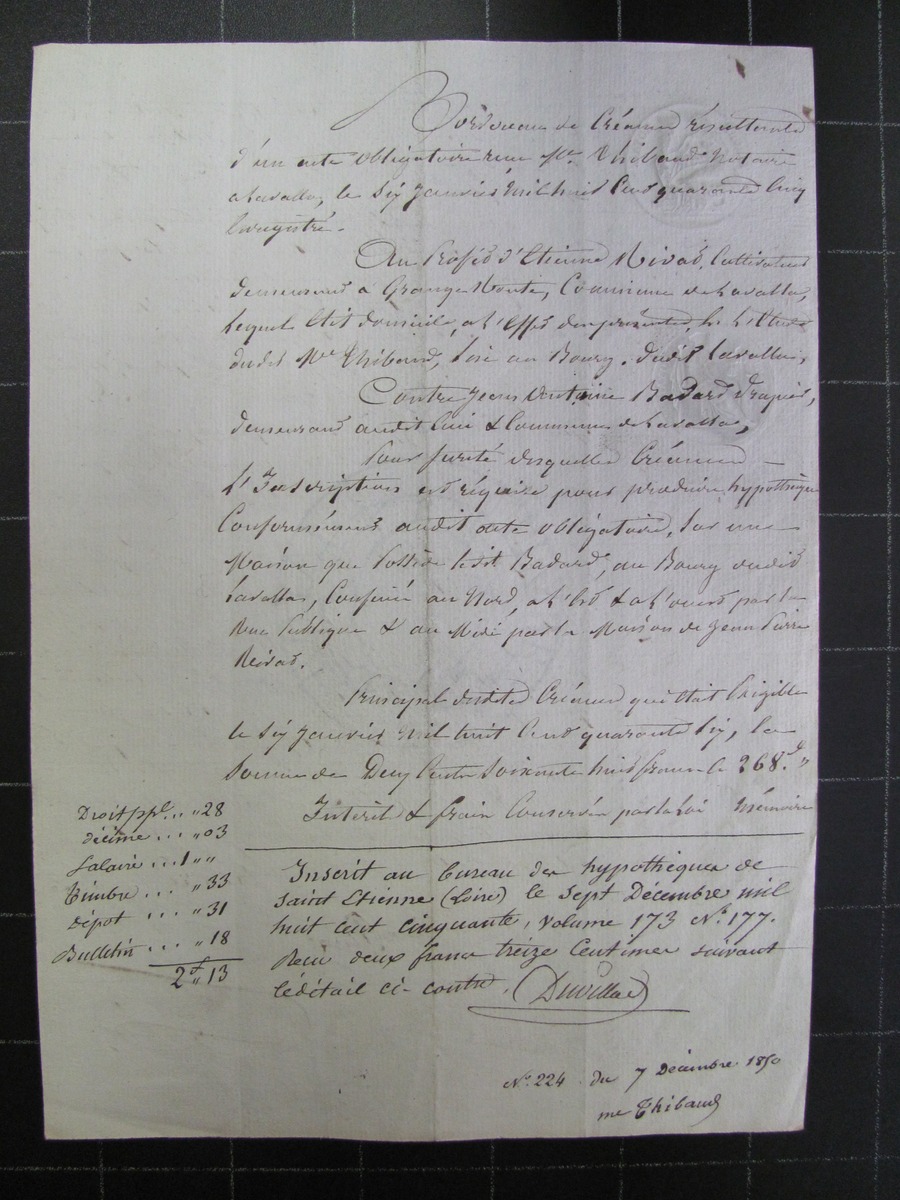 Bordereau de Créance résultante
d'un acte obligatoire reçu Me. Thibaud Notaire
a Lavalla, le six janvier mil huit cent quarante cinq
Enregistré.
Au Profit d'Etienne Rivat, Cultivateur
demeurant à Grange Monte, Commune de Lavalla,
lequel Elit domicile, a l'Effet des présentes, en l'Etude
dudit Me. Thibaud, sise au Bourg dudit Lavalla,
Contre Jean Antoine Badard Drapier,
demeurant audit lieu & Commune de Lavalla,
Pour sureté de quelle Créance
L'Inscription est réquise pour produire hypothèque
Conformément audit acte obligatoire, sur une
Maison que Possède ledit Badard, au Bourg dudit
Lavalla, Confinée au Nord, a l'Est & a l'ouest par la
Rue Publique & au Midi par la Maison de Jean Pierre
Rivat.
Principal de ladite Créance qui était Exigible
le six janvier mil huit Cent quarante six, la
Somme de Deux Cents Soixante huit francs 268.f "
Intérêt & frais Conservés par la Loi Mémoire
Droit ppl. .. " 28
décime ... " 03
Salaire ... 1 " "
Timbre ... " 33
dépot ... " 31
Bulletin ... " 18
2f " 13
Inscrit au bureau des hypothèques de
Saint Etienne (Loire) le sept Décembre mil
huit cent cinquante, volume 173 No. 177.
Reçu deux francs treize Centimes suivant
le détail ci-contre.
No. 224 du 7 Décembre 1850
me Thibaud